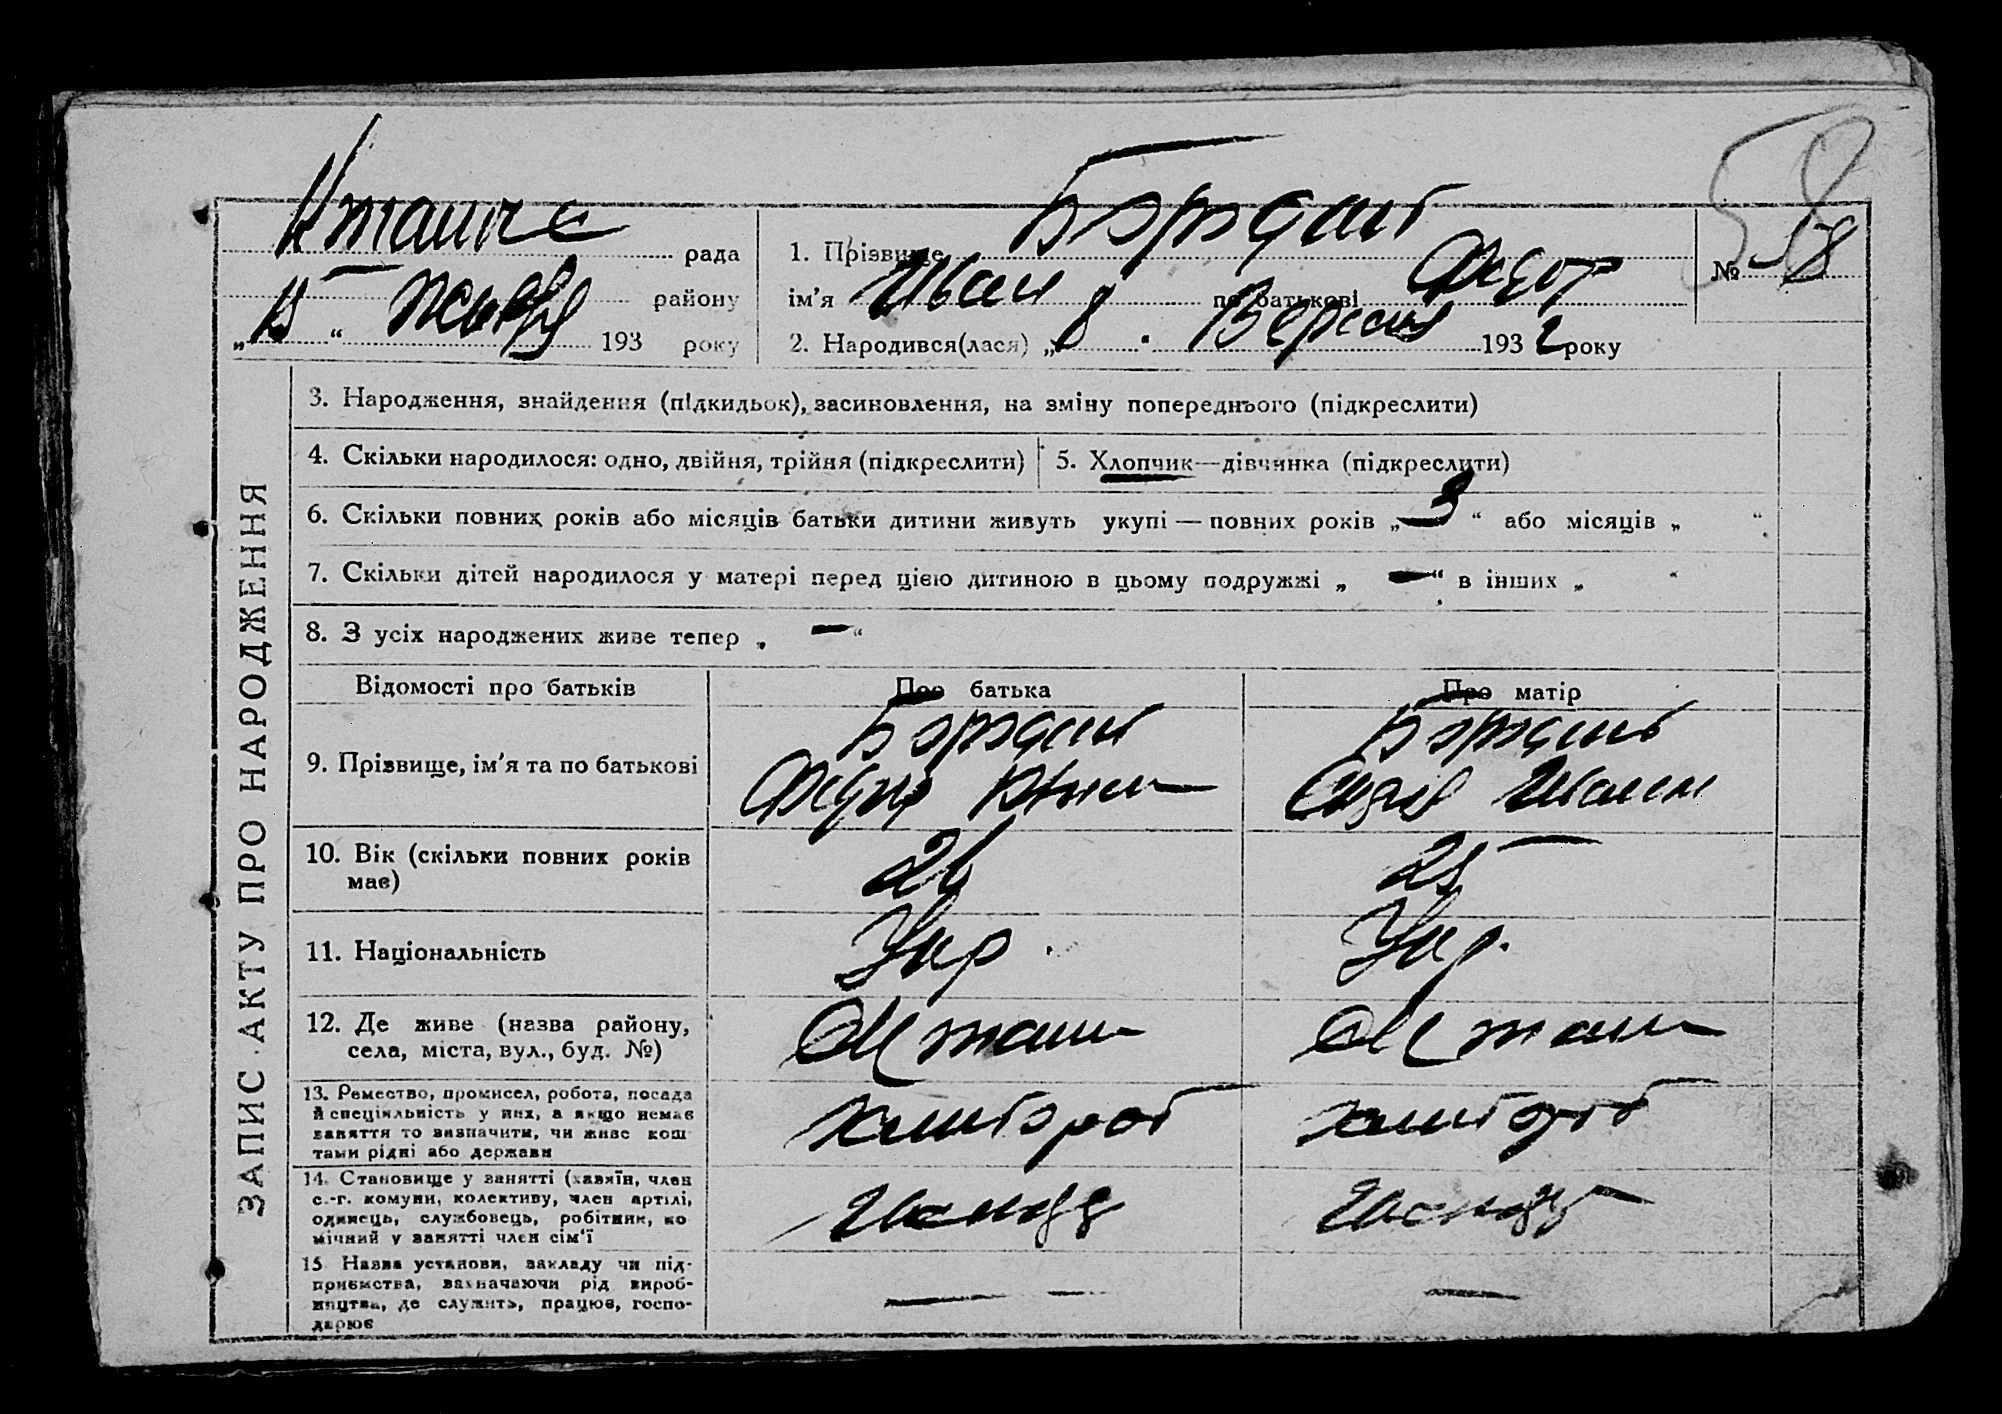 58
рада
1. Прізвище
№ 58
району
ім'я Иван по батькові Федот
„15“ Жовтня 193 року
2. Народився(лася) „8. Вересня 1932 року
ЗАПИС АКТУ ПРО НАРОДЖЕННЯ
3. Народження, знайдення (підкидьок), засиновлення, на зміну попереднього (підкреслити)
4. Скільки народилося: одно, двійня, трійня (підкреслити)
5. Хлопчик—дівчинка (підкреслити)
6. Скільки повних років або місяців батьки дитини живуть укупі — повних років „3“ або місяців „ “
7. Скільки дітей народилося у матері перед цією дитиною в цьому подружжі „ —“ в інших „ “
8. З усіх народжених живе тепер „ —“
Відомості про батьків
Про батька
Про матір
9. Прізвище, ім'я та по батькові
10. Вік (скільки повних років
має)
26
25
11. Національність
Укр.
Укр.
12. Де живе (назва району,
села, міста, вул., буд. №)
13. Ремество, промисел, робота, посада
й спеціяльність у них, а якщо немає
заняття то визначити, чи живе кош
тами рідні або держави
хлибороб
хлибороб
14. Становище у занятті (хазяїн, член
с.-г. комуни, колективу, член артілі,
одинець, службовець, робітник, по
мічний у занятті член сім'ї
15 Назва установи, закладу чи під-
приємства, зазначаючи рід вироб-
ництва, де служить, працює, госпо-
дарює
—
—